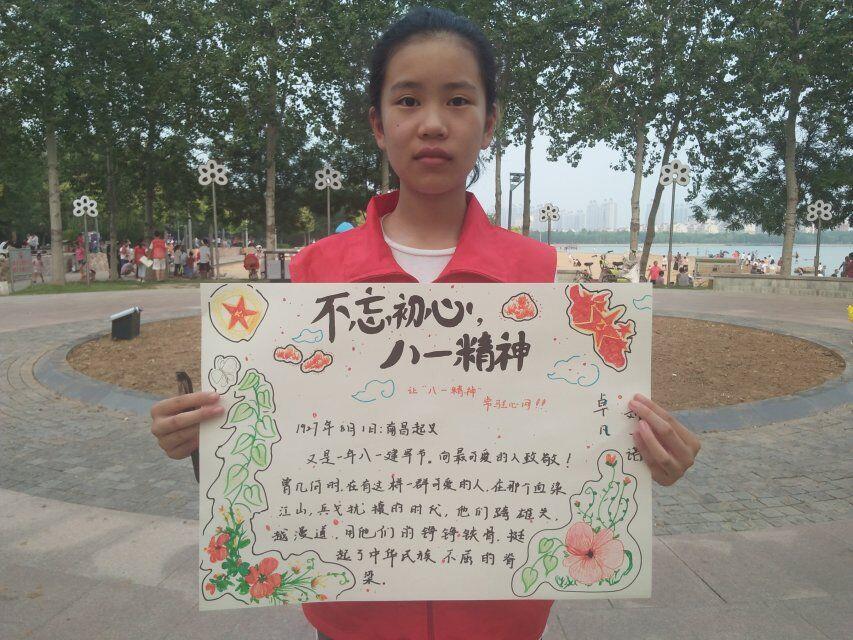 不忘初心,
八一精神
让“八一精神”
常驻心间!!
卓凡
语
1927年8月1日:南昌起义
又是一年八一建军节。向最可爱的人致敬!
曾几何时,在有这样一群可爱的人,在那个血染
江山,兵戈扰攘的时代,他们踏雄关,
越漫道,用他们的铮铮铁骨,挺
起了中华民族不屈的脊
梁.